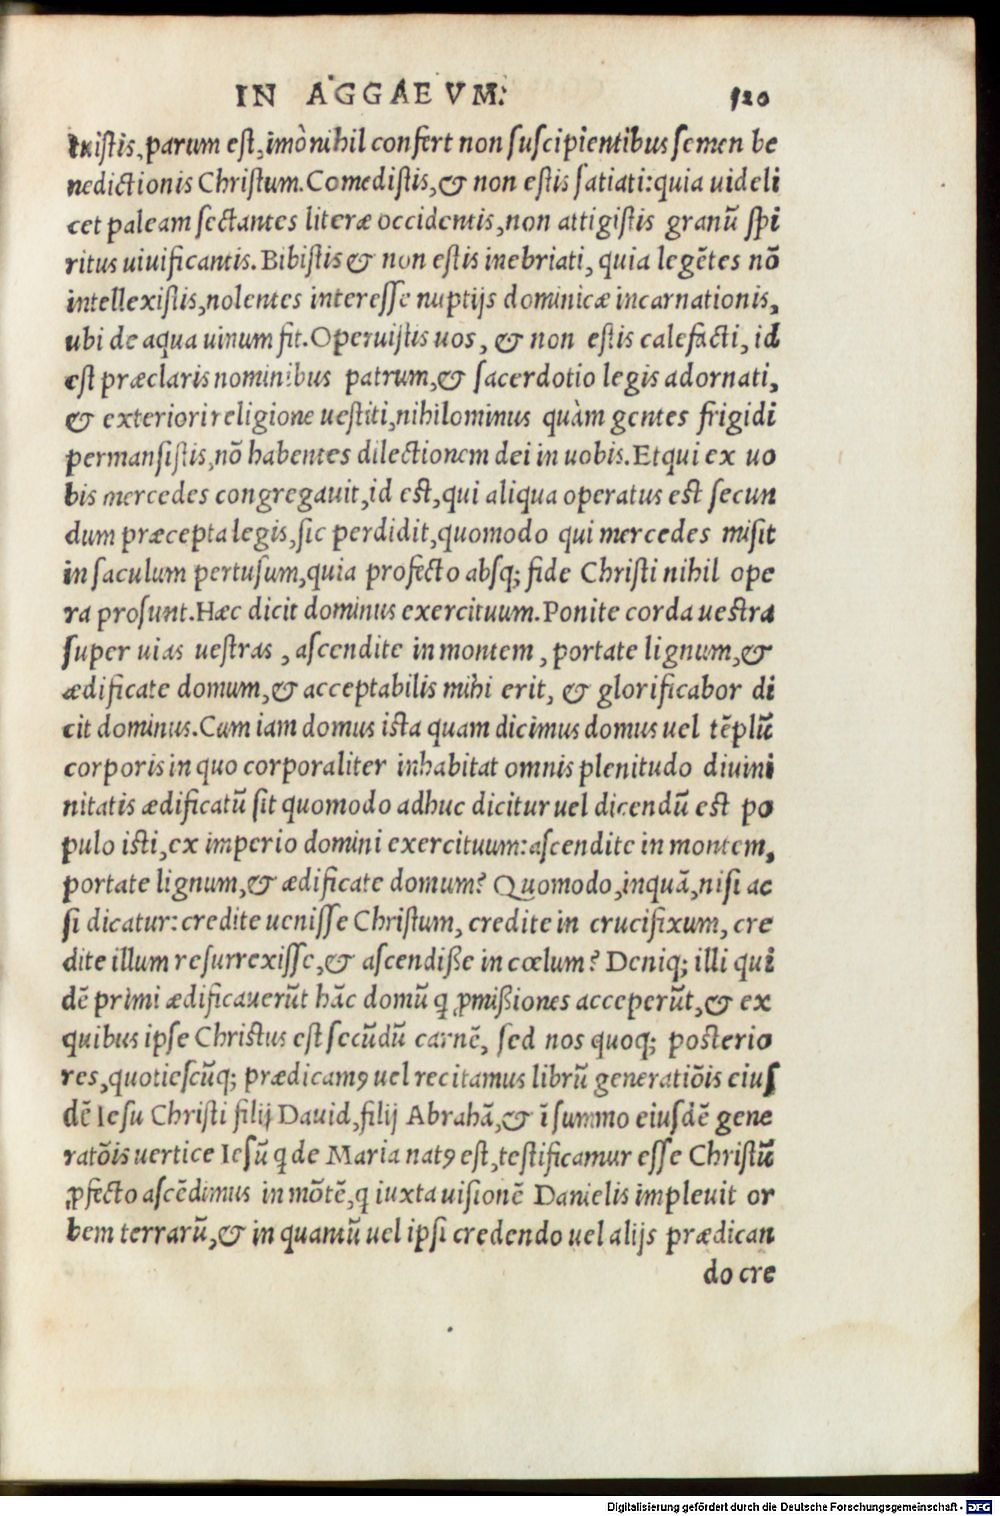 IN AGGAEVM. 520
tuistis, parum est, imò nihil confert non suscipientibus semen be
nedictionis Christum. Comedistis, & non estis satiati: quia uideli
cet paleam sectantes literæ occidentis, non attigistis granũ spi
ritus uiuificantis. Bibistis & non estis inebriati, quia legẽtes nõ
intellexistis, nolentes interesse nuptijs dominicæ incarnationis,
ubi de aqua uinum fit. Operuistis uos, & non estis calefacti, id
est præclaris nominibus patrum, & sacerdotio legis adornati,
& exteriori religione uestiti, nihilominus quàm gentes frigidi
permansistis, nõ habentes dilectionem dei in uobis. Et qui ex uo
bis mercedes congregauit, id est, qui aliqua operatus est secun
dum præcepta legis, sic perdidit, quomodo qui mercedes misit
in saculum pertusum, quia profecto absq; fide Christi nihil ope
ra prosunt. Hæc dicit dominus exercituum. Ponite corda uestra
super uias uestras, ascendite in montem, portate lignum, &
ædificate domum, & acceptabilis mihi erit, & glorificabor di
cit dominus. Cum iam domus ista quam dicimus domus uel tẽplũ
corporis in quo corporaliter inhabitat omnis plenitudo diuini
nitatis ædificatũ sit quomodo adhuc dicitur uel dicendũ est po
pulo isti, ex imperio domini exercituum: ascendite in montem,
portate lignum, & ædificate domum? Quomodo, inquã, nisi ac
si dicatur: credite uenisse Christum, credite in crucifixum, cre
dite illum resurrexisse, & ascendiße in cœlum? Deniq; illi qui
dẽ primi ædificauerũt hãc domũ q ꝓmißiones acceperũt, & ex
quibus ipse Christus est secũdũ carnẽ, sed nos quoq; posterio
res, quotiescũq; prædicamꝰ uel recitamus librũ generatiõis eius
dẽ Iesu Christi filij Dauid, filij Abrahã, & ĩ summo eiusdẽ gene
ratõis uertice Iesũ q de Maria natꝰ est, testificamur esse Christũ
ꝓfecto ascẽdimus in mõtẽ, q iuxta uisionẽ Danielis impleuit or
bem terrarũ, & in quantũ uel ipsi credendo uel alijs prædican
do cre
Digitalisierung gefördert durch die Deutsche Forschungsgemeinschaft - DFG